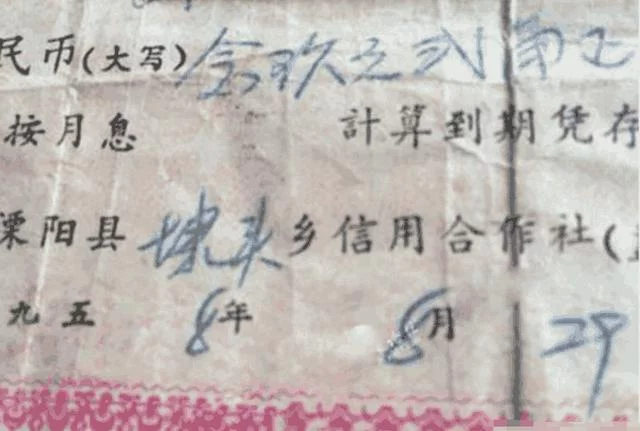 民币(大写) 玖元弍角
按月息 計算到期凭存
溧阳县埭头乡信用合作社(
九五8年 8月 29